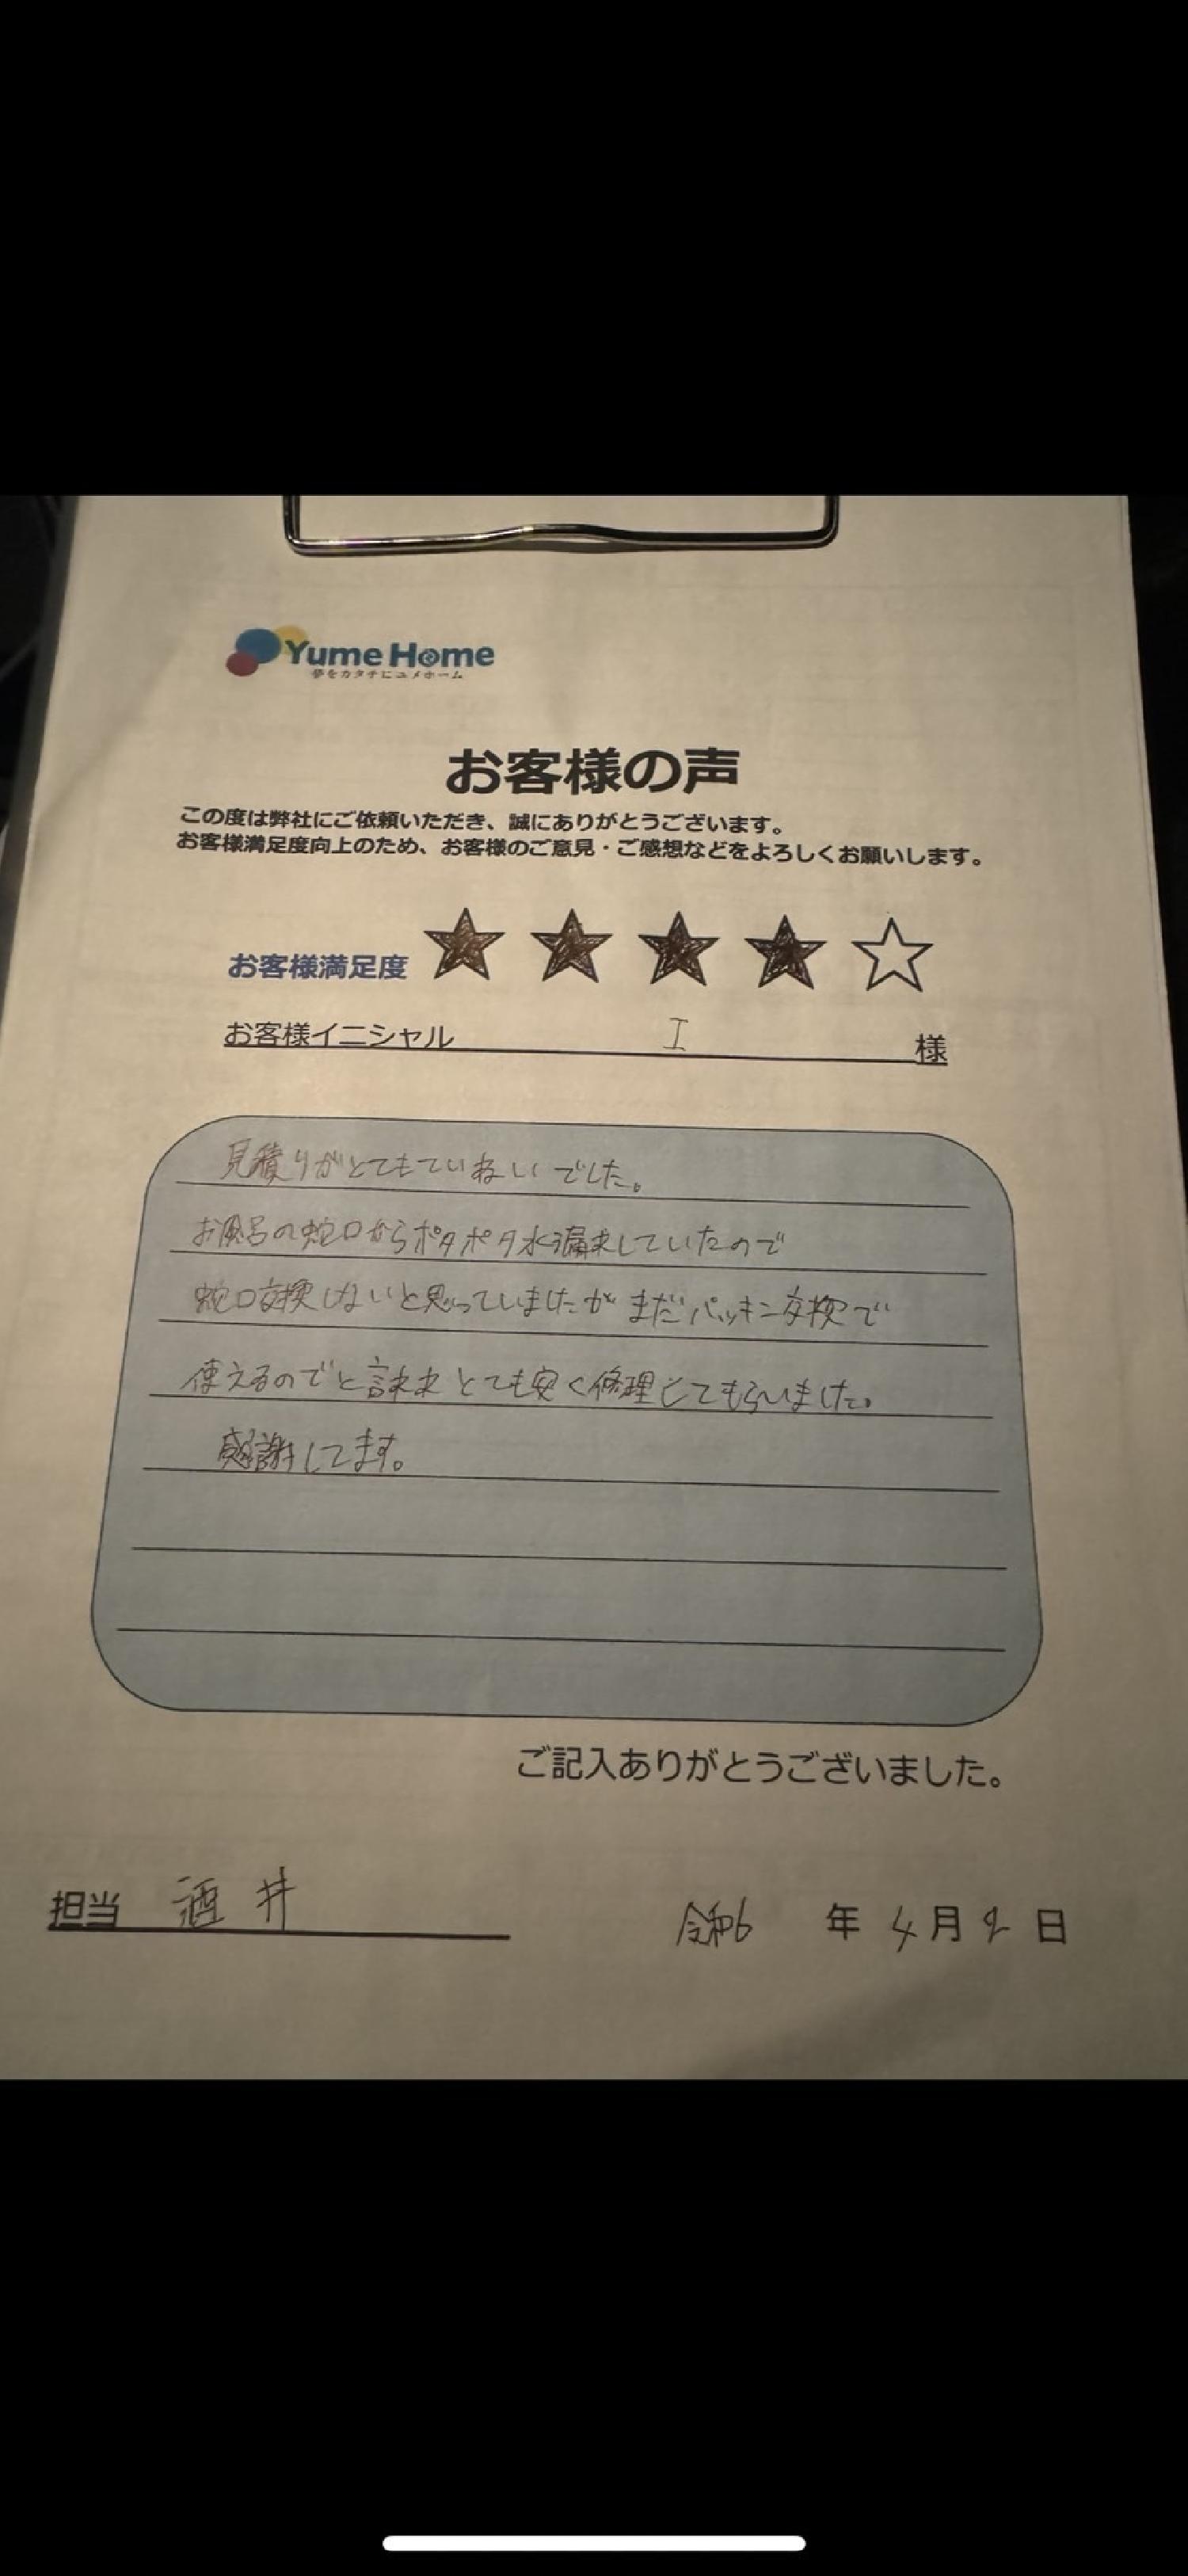 Yume Home
夢をカタチにユメホーム
お客様の声
この度は弊社にご依頼いただき、誠にありがとうございます。
お客様満足度向上のため、お客様のご意見・ご感想などをよろしくお願いします。
お客様満足度 ★★★★☆
お客様イニシャル I 様
見積りがとてもていねいでした。
お風呂の蛇口からポタポタ水漏れしていたので
蛇口交換しないと思っていましたがまだパッキン交換で
使えるのでと言われ とても安く修理してもらいました。
感謝してます。
ご記入ありがとうございました。
担当 酒井 令和6 年 4月 日